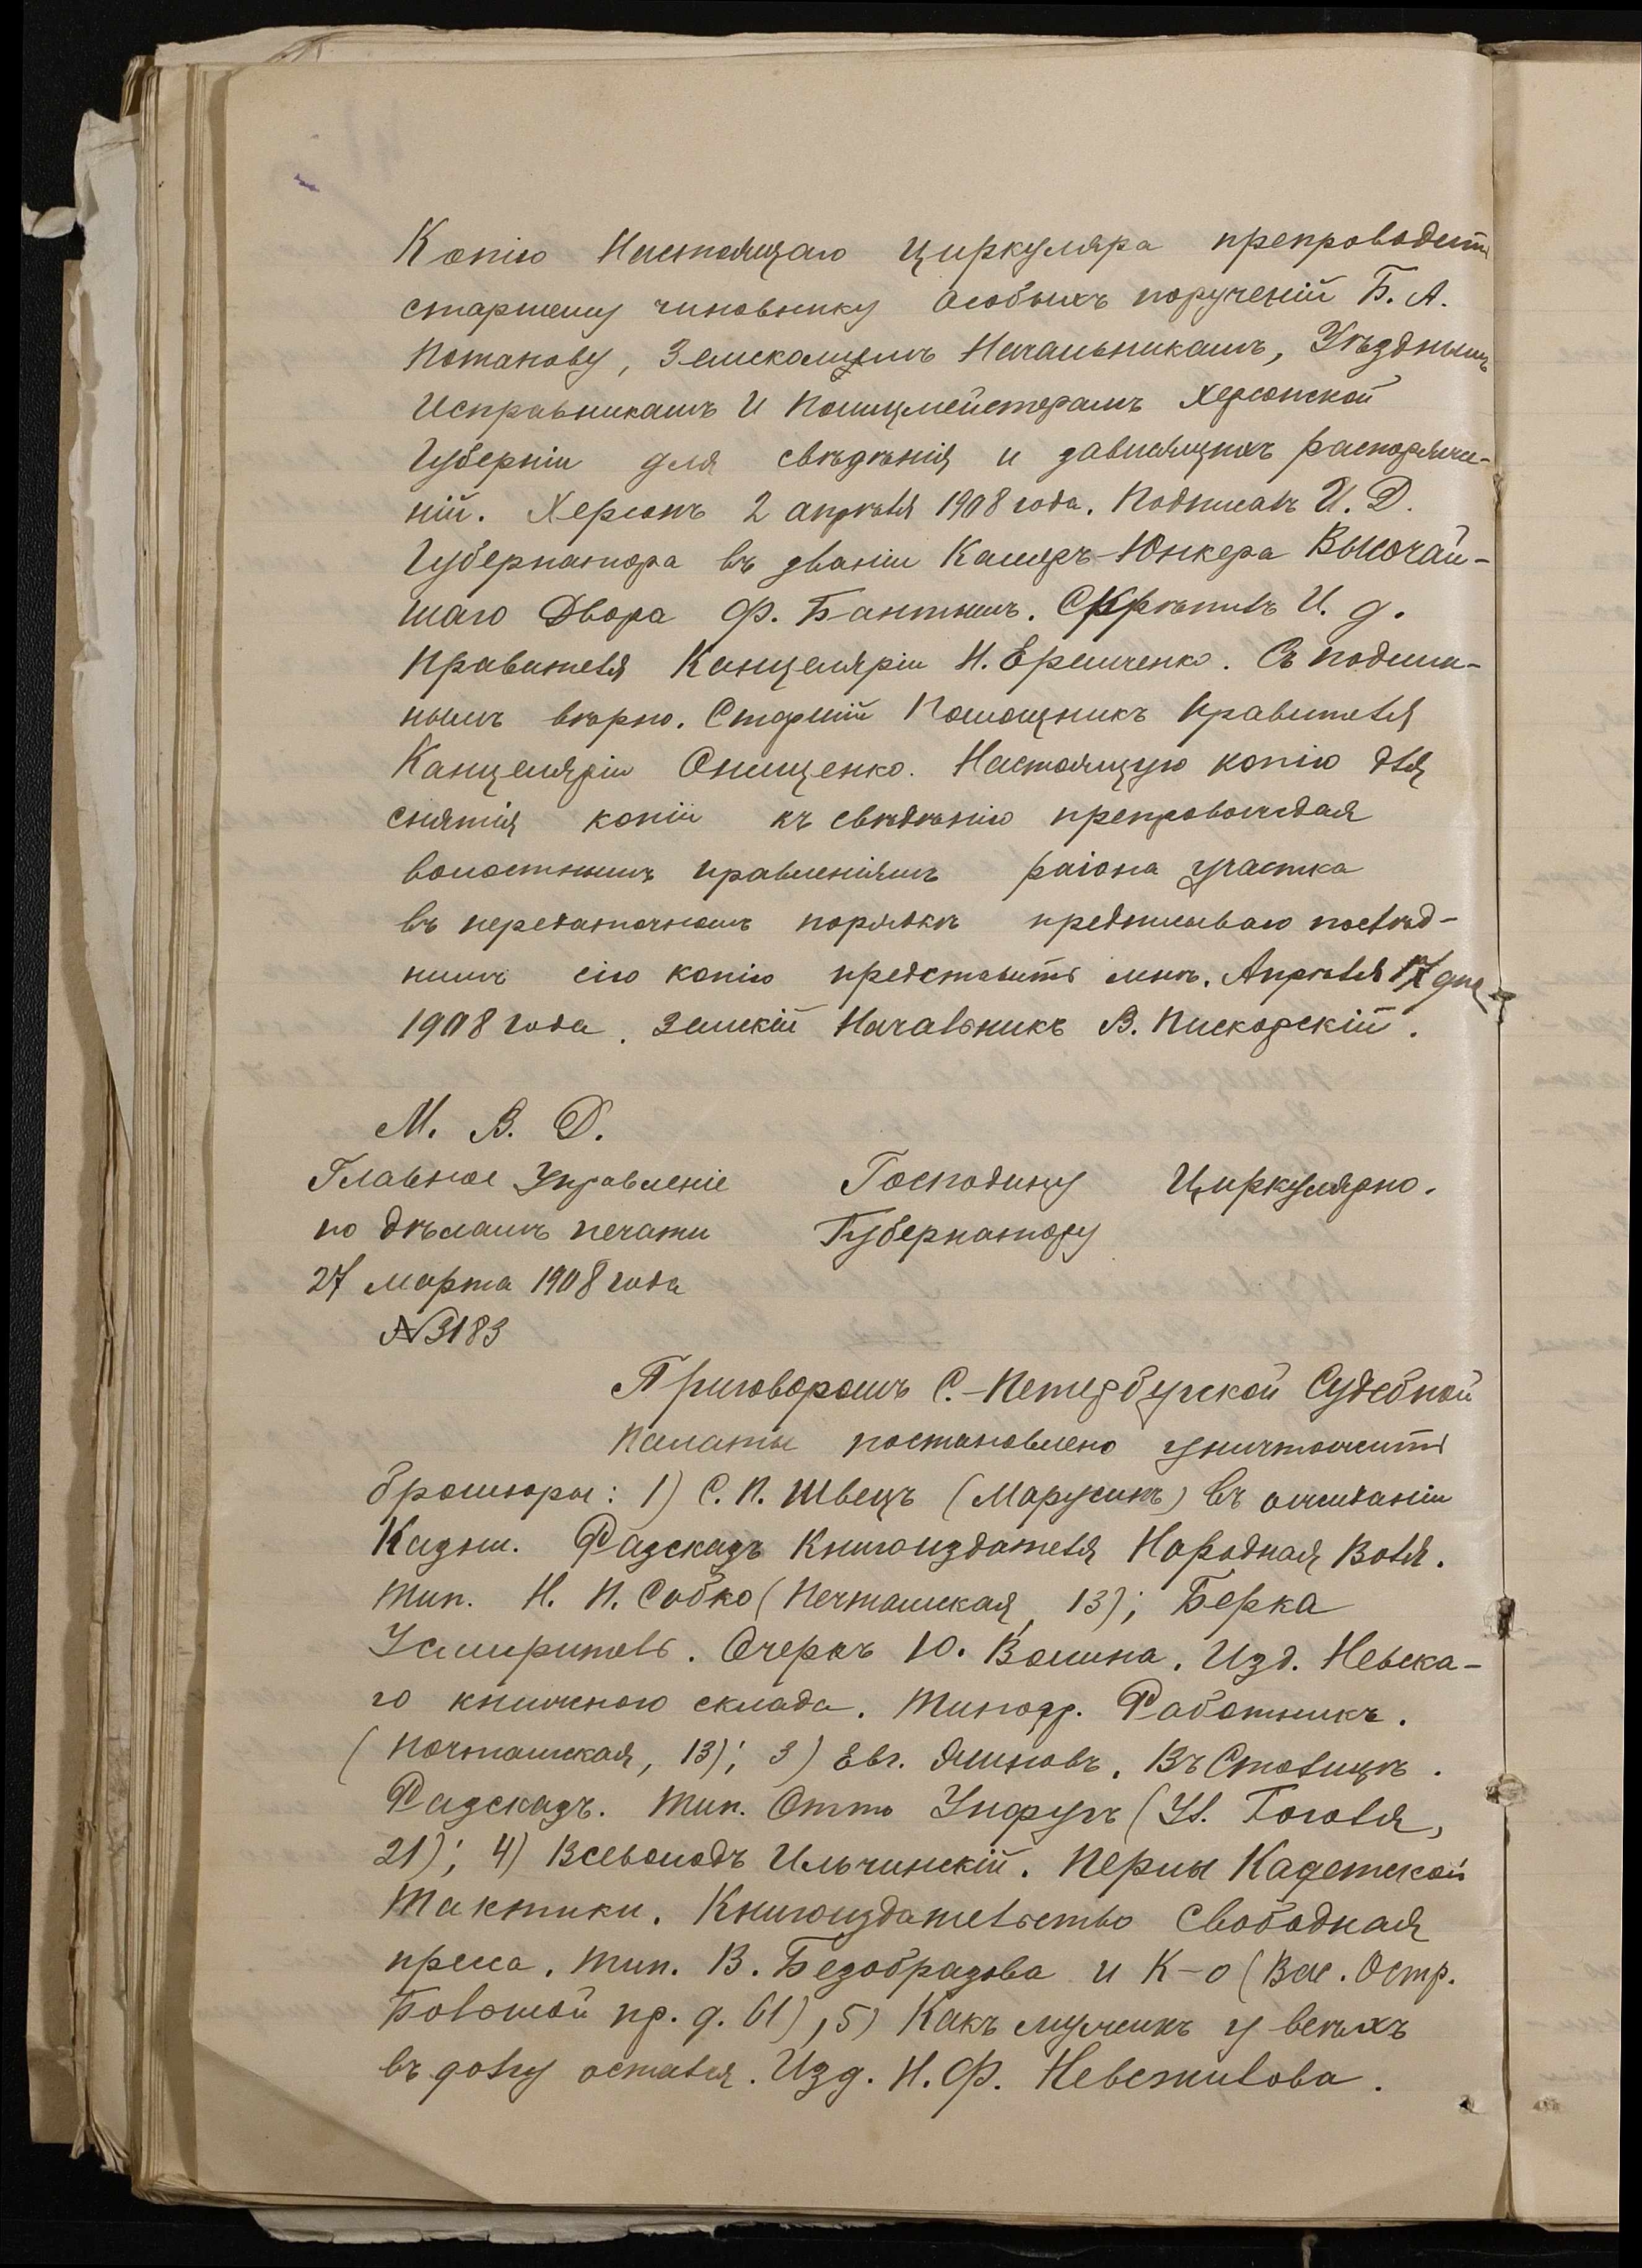 Копію Настоящаго циркуляра препроводить
старшему чиновнику особыхъ порученій Б. А.
Потапову, Земскимъ Начальникамъ, Уѣзднымъ
Исправникамъ И Полицмейстерамъ Херсонской
Губерніи для свѣдѣнія и зависящихъ распоряже-
ній. Херсонъ 2 апрѣля 1908 года. Подписалъ И. Д.
Губернатора въ званіи Камеръ-Юнкера Высочай-
шаго Двора Ф. Бантышъ. Скрѣпилъ И. д.
Правителя Канцеляріи Н. Еремченко. Съ подлин-
нымъ вѣрно. Старшій Помощникъ Правителя
Канцеляріи Онищенко. Настоящую копію для
снятія копіи къ свѣдѣнію препровождая
волостнымъ правленіямъ раіона участка
въ передаточномъ порядкѣ предписываю послѣд-
нимъ сію копію представить мнѣ. Апрѣля 17 дня
1908 года. Земскій Начальникъ В. Пискорскій.
М. В. Д.
Главное Управленіе Господину Циркулярно.
по дѣламъ печати Губернатору
27 марта 1908 года
№3183
Приговоромъ С.-Петербургской Судебной
Палаты постановлено уничтожить
брошюры: 1) С. П. Швецъ (Марусинъ) Въ ожиданіи
Казни. Разсказъ Книгоиздателя Народная Воля.
Тип. Н. П. Собко (Почтамская, 13); Берка
Усмиритель. Очеркъ Ю. Волина. Изд. Невска-
го книжного склада. Типогр. Работникъ.
(Почтамская, 13); 3) Евг. Аминовъ. Въ Столицѣ.
Разсказъ. Тип. Отто Унфугъ (Ул. Гоголя,
21); 4) Всеволодъ Ильчинскій. Перлы Кадетской
Тактики. Книгоиздательство Свободная
пресса. Тип. В. Безобразова и К-о (Вас. Остр.
Большой пр. д. 61), 5) Какъ мужикъ у всѣхъ
въ долгу остался. Изд. Н. Ф.